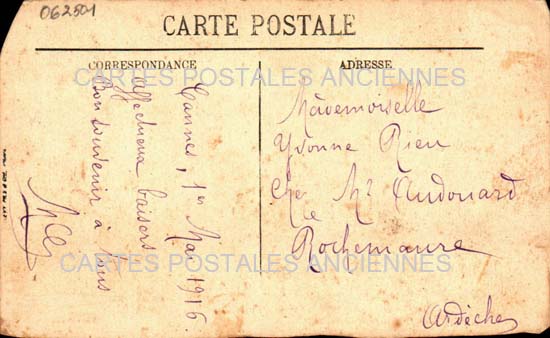 062501
CARTE POSTALE
CORRESPONDANCE
ADRESSE
CARTES POSTALES ANCIENNES
Cannes, 1er Mai 1916
affectueux baisers
Bon souvenir à tous
Mademoiselle
Yvonne Rieu
chez Mr Audouard
Rochemaure
Ardèche
CARTES POSTALES ANCIENNES